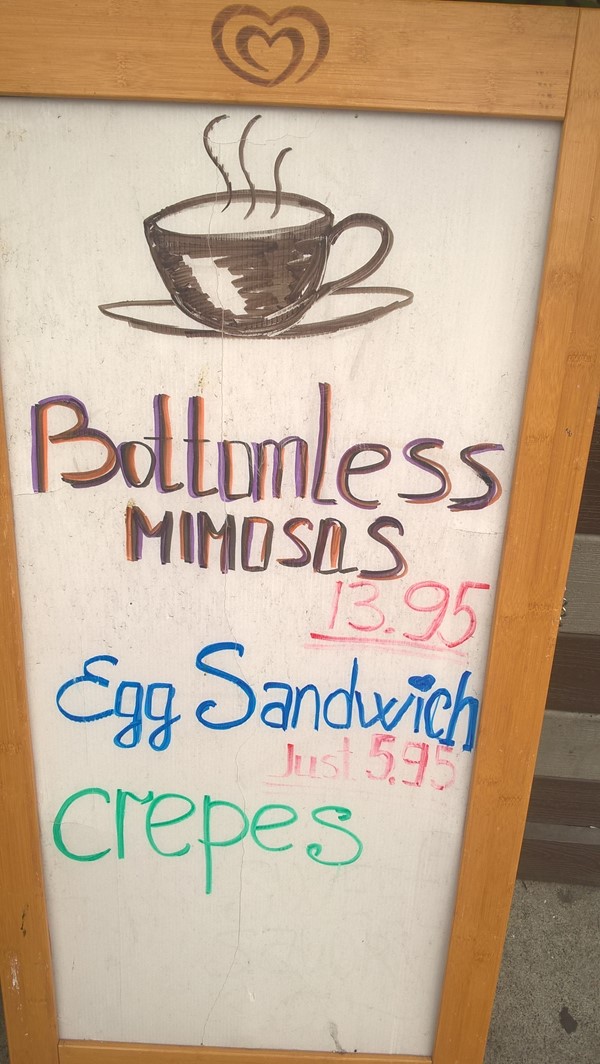 Bottomless
MIMOSAS
13.95
Egg Sandwich
Just 5.95
crepes